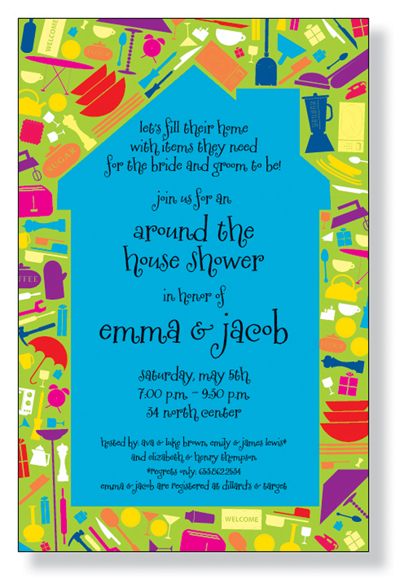 WELCOME
SUGAR
COFFEE
let's fill their home
with items they need
for the bride and groom to be!
join us for an
around the
house shower
in honor of
emma & jacob
saturday, may 5th
7:00 p.m. - 9:30 p.m.
34 north center
hosted by: ava & luke brown, emily & james lewis*
and elizabeth & henry thompson
*regrets only: 633.862.2534
emma & jacob are registered at dillard's & target
WELCOME